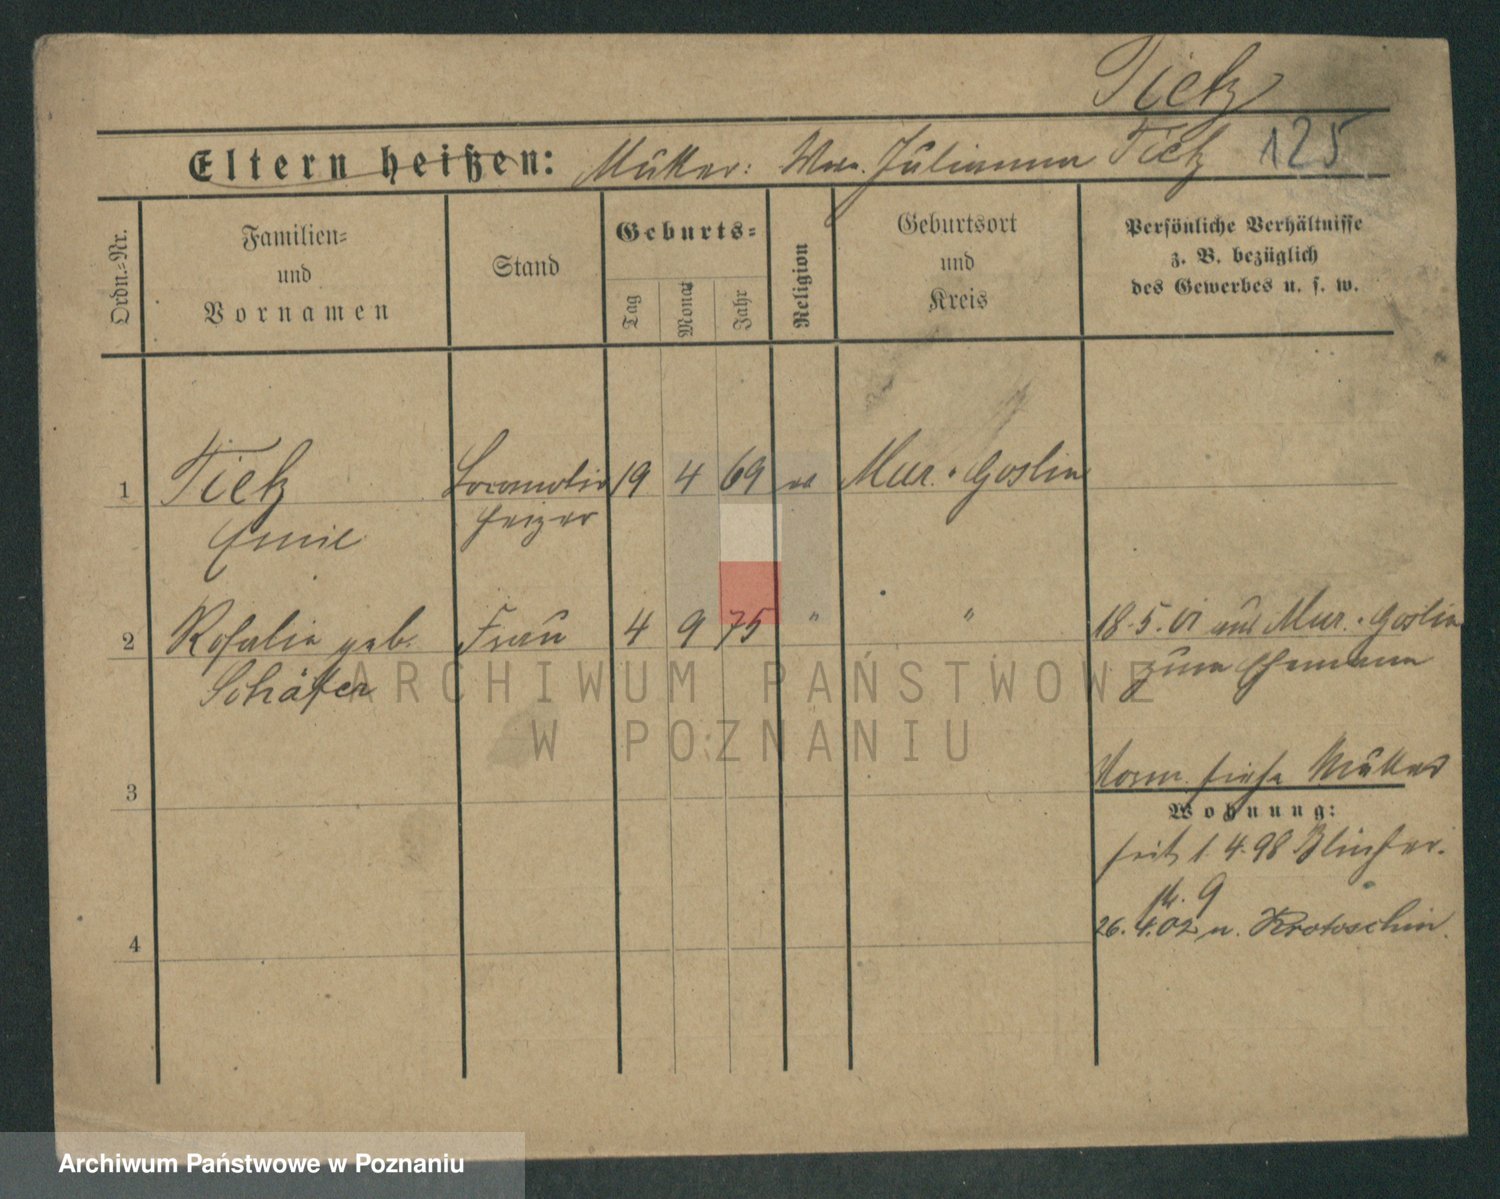 Tietz
Eltern heißen: Mutter: Wwe. Julianna Tietz 125
Ordn.-Nr.
Familien-
und
Vornamen
Stand
Geburts-
Tag
Monat
Jahr
Religion
Geburtsort
und
Kreis
Persönliche Verhältnisse
z. B. bezüglich
des Gewerbes u. s. w.
1 Tietz Locomotiv 19 4 69 Mur. Goslin
Emil heizer
2 Rosalie geb. Frau 4 9 75 " " 18.5.01 aus Mur. Goslin
Schäfer zum Ehemann
3 siehe Mutter
Wohnung:
seit 1.4.98 Blücher.
str. 9
4 26.4.02 n. Krotoschin.
ARCHIWUM PAŃSTWOWE
W POZNANIU
Archiwum Państwowe w Poznaniu